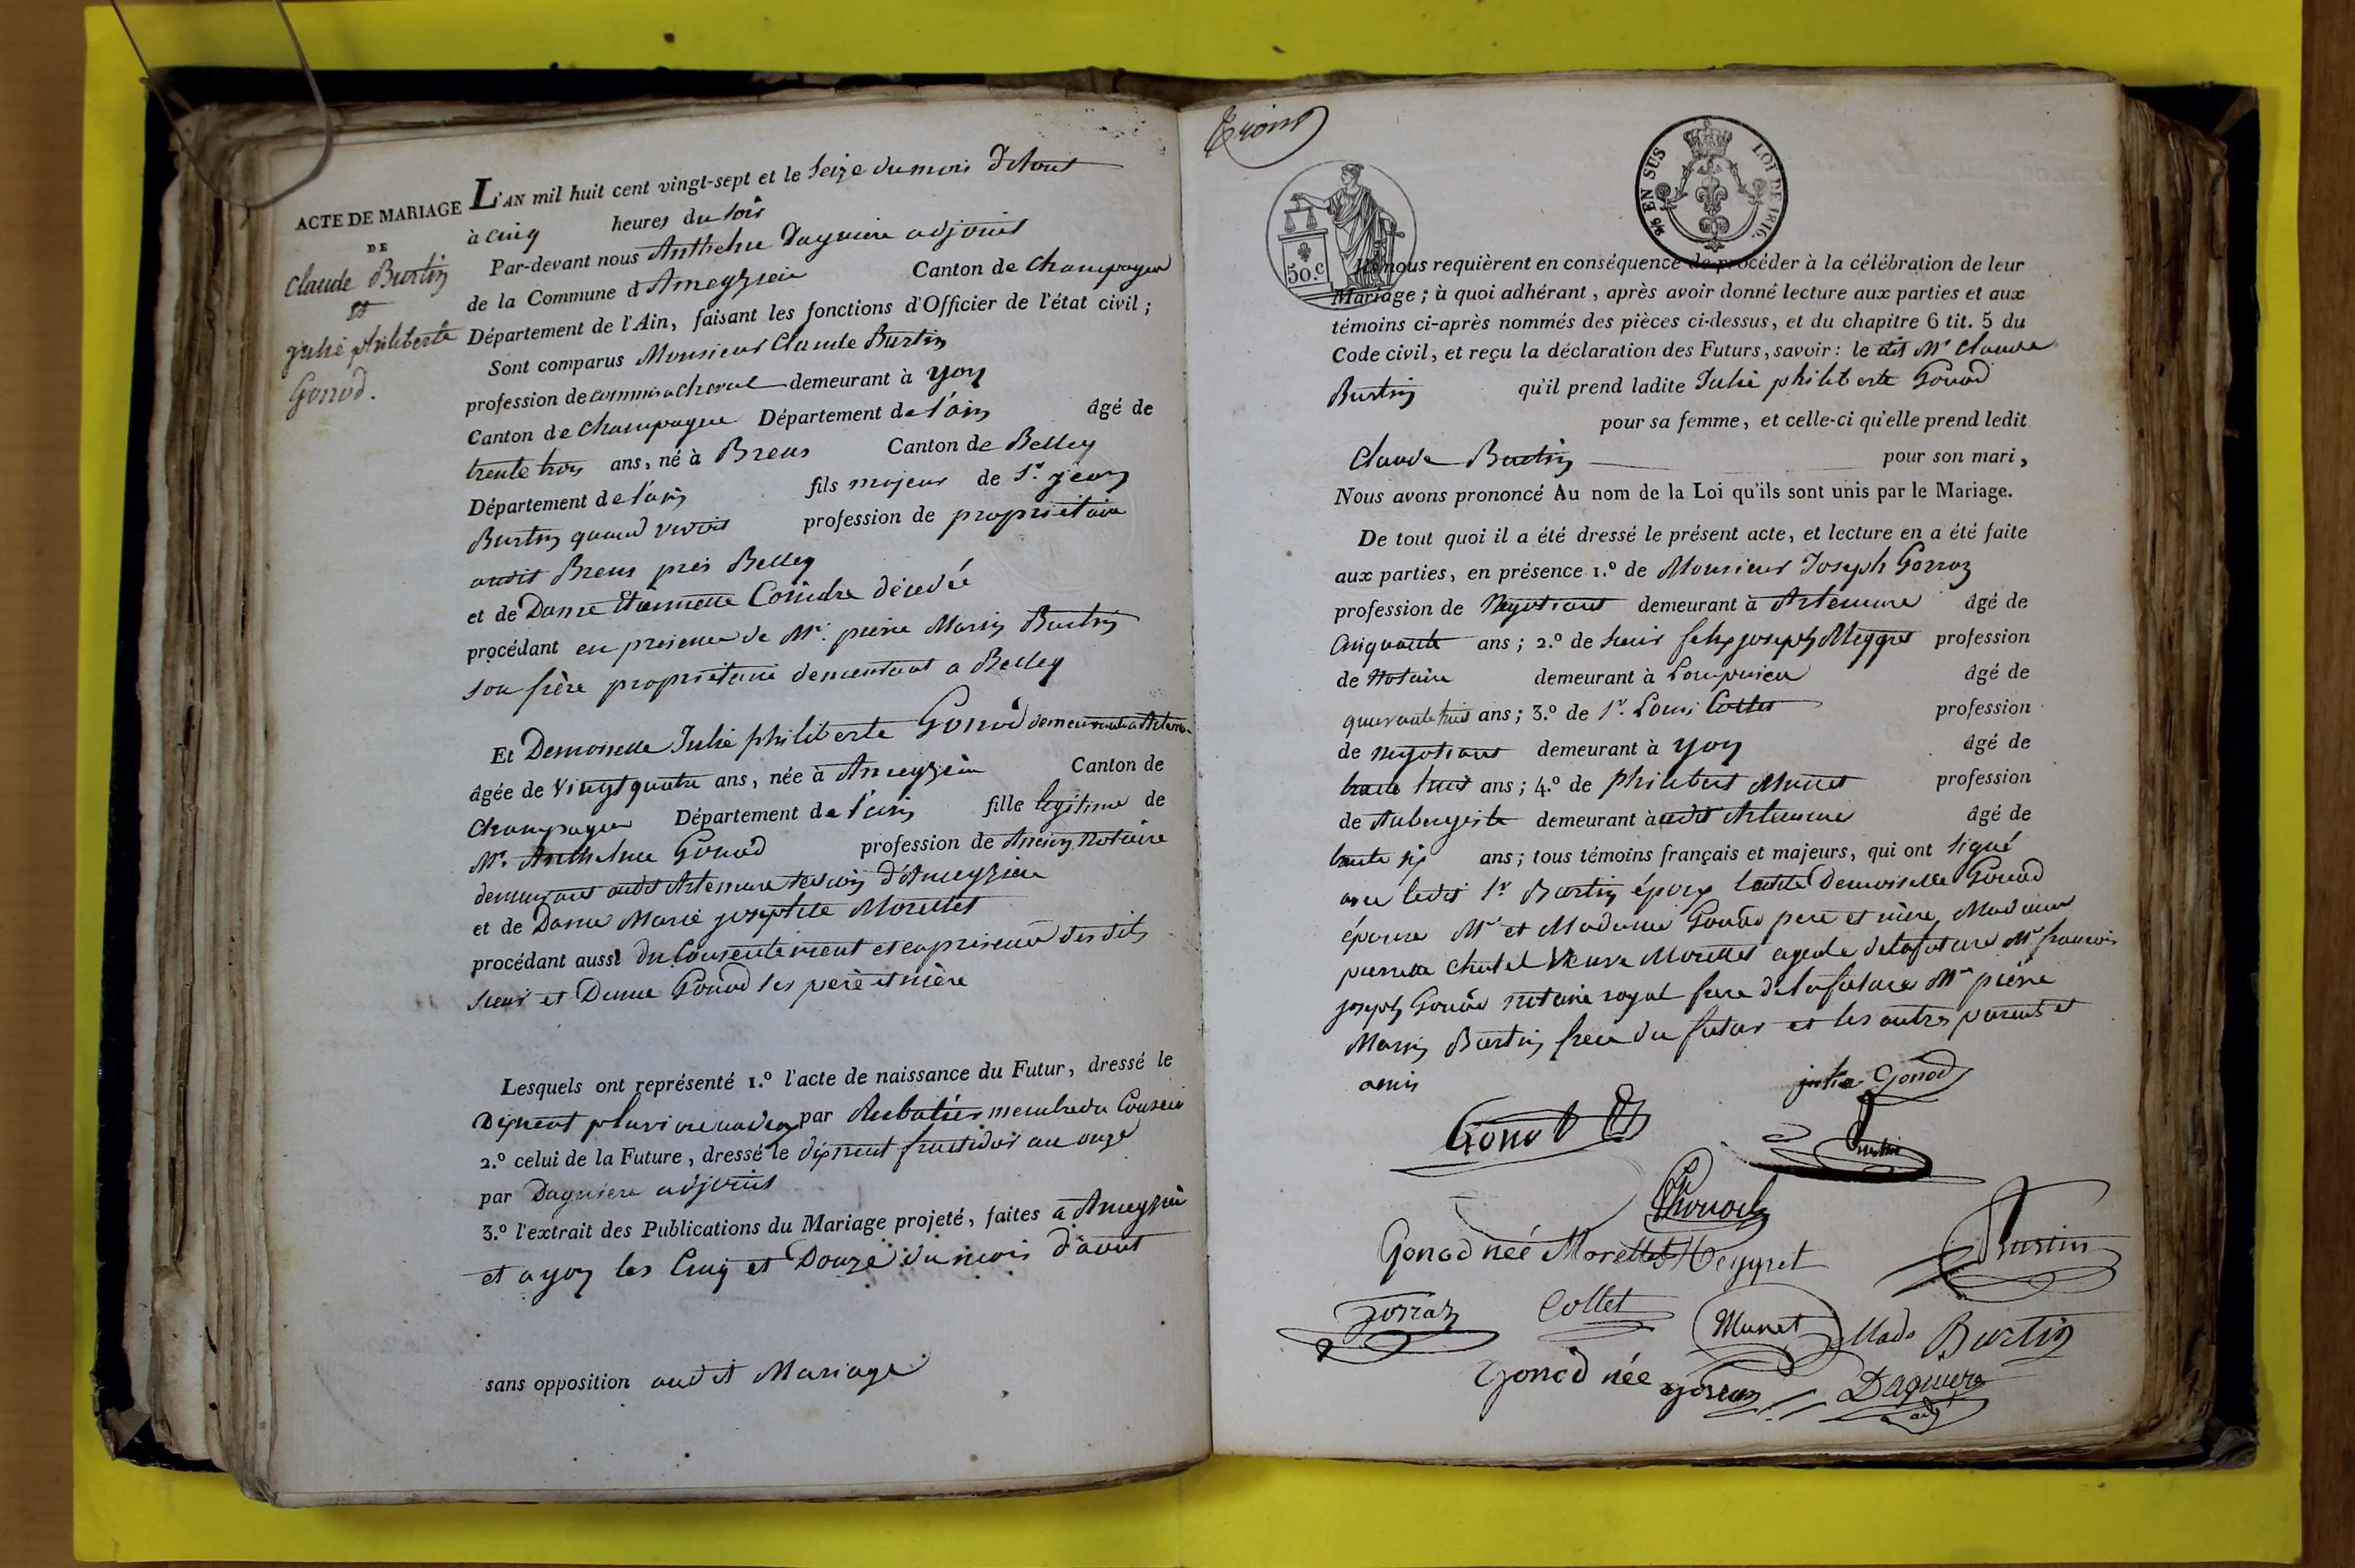 ACTE DE MARIAGE
DE
Claude Burtin
et
Julie philiberte
Gonod.
L'AN mil huit cent vingt-sept et le Seize du mois d'Aout
à cinq heures du soir
Par-devant nous Anthelme Daguiere adjoint
de la Commune d'Ameyzieu Canton de Champagne
Département de l'Ain, faisant les fonctions d'Officier de l'état civil ;
Sont comparus Monsieur Claude Burtin
profession de commis a cheval demeurant à yon
Canton de Champagne Département de l'ain âgé de
trente trois ans, né à Brens Canton de Belley
Département de l'ain fils majeur de Sr. jean
Burtin quand vivoit profession de propriétaire
audit Brens près Belley
et de Dame Etiennette Coindre décédée
procédant en presence de Mr. pierre Marin Burtin
son frère propriétaire demeurant a Belley
Et Demoiselle Julie philiberte Gonod demeurante a Artem
âgée de Vingt quatre ans, née à Ameyzieu Canton de
Champagne Département de l'ain fille légitime de
Mr. Anthelme Gonod profession de Ancien Notaire
demeurant audit Artemare d'Ameyzieu
et de Dame Marie josephte Morellet
procédant aussi du Consentement et en presence des dits
sieur et Dame Gonod ses père et mère
Lesquels ont représenté 1.º l'acte de naissance du Futur, dressé le
Dixneuf pluviose par Rubatier membre du Conseil
2.º celui de la Future, dressé le dixneuf fructidor an onze
par Daguiere adjoint
3.º l'extrait des Publications du Mariage projeté, faites a Ameyzieu
et a yon les Cinq et Douze du mois d'aout
sans opposition audit Mariage
50.c
5/5 EN SUS LOI DE 1816.
Ils nous requièrent en conséquence de procéder à la célébration de leur
Mariage ; à quoi adhérant, après avoir donné lecture aux parties et aux
témoins ci-après nommés des pièces ci-dessus, et du chapitre 6 tit. 5 du
Code civil, et reçu la déclaration des Futurs, savoir : le dit Mr Claude
Burtin qu'il prend ladite Julie philiberte Gonod
pour sa femme, et celle-ci qu'elle prend ledit
Claude Burtin pour son mari,
Nous avons prononcé Au nom de la Loi qu'ils sont unis par le Mariage.
De tout quoi il a été dressé le présent acte, et lecture en a été faite
aux parties, en présence 1.º de Monsieur Joseph Gorraz
profession de Negotiant demeurant à Artemare âgé de
Cinquante ans ; 2.º de Sieur felix joseph Meygret profession
de Notaire demeurant à Lompnieu âgé de
quarante huit ans ; 3.º de Sr. Louis Collet profession
de negotiant demeurant à yon âgé de
trente huit ans ; 4.º de philibert Munet profession
de Aubergiste demeurant à audit Artemare âgé de
trente six ans ; tous témoins français et majeurs, qui ont signé
avec ledit Sr Burtin époux ladite Demoiselle Gonod
épouse Mr et Madame Gonod pere et mère, Madame
pierrette Chatel Veuve Morellet ayeule de la future Mr francois
joseph Gonod notaire royal frere de la future Mr pierre
Marin Burtin frere du futur et les autres parents et
amis
julie Gonod
Gonod
Burtin
Gonod née Morellet Meygret
Burtin
Gorraz
Collet
Munet
Burtin
Gonod née gorraz
Daguiere
adj